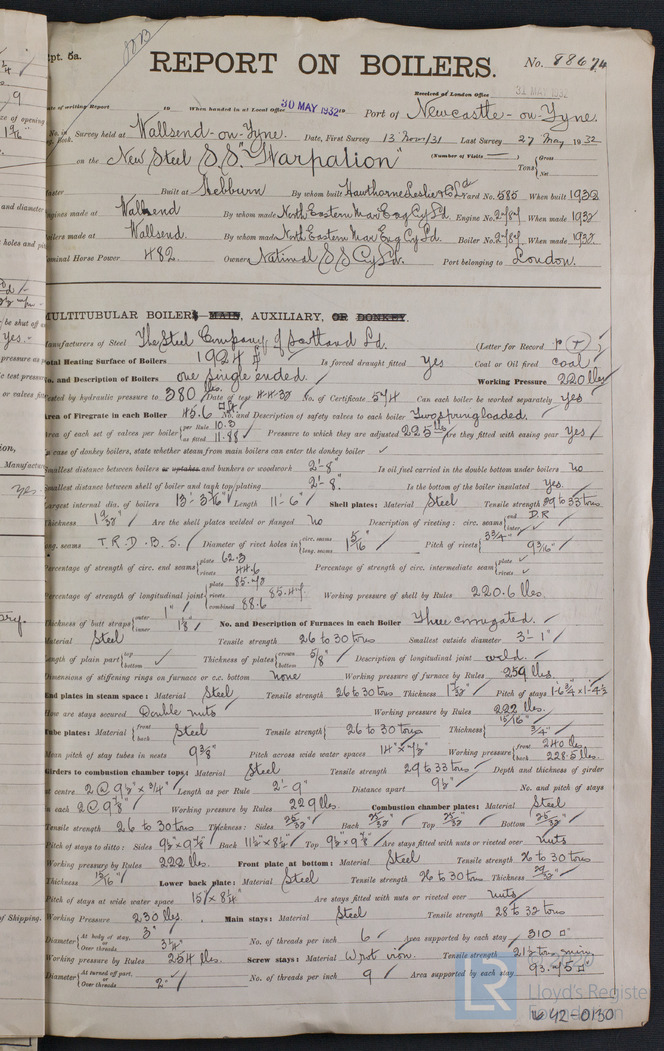 Rpt. 5a.
REPORT ON BOILERS.
No. 88674
Received at London Office 31 MAY 1932
Date of writing Report 19 When handed in at Local Office 30 MAY 1932 19 Port of Newcastle-on-Tyne.
No. in Reg. Book. Survey held at Wallsend-on-Tyne. Date, First Survey 13 Nov/31 Last Survey 27 May 1932
on the New Steel S.S. "Warpalion" (Number of Visits —) Tons Gross Net
Master Built at Hebburn By whom built Hawthorne Leslie & Co Ld Yard No. 585 When built 1932
Engines made at Wallsend By whom made North Eastern Mar Eng Cy Ld. Engine No. When made 1932
Boilers made at Wallsend By whom made North Eastern Mar Eng Cy Ld. Boiler No. When made 1932.
Nominal Horse Power 482 Owners National S S Cy Ld. Port belonging to London.
MULTITUBULAR BOILERS—MAIN, AUXILIARY, OR DONKEY.
Manufacturers of Steel The Steel Company of Scotland Ld. (Letter for Record r )
Total Heating Surface of Boilers 1924 Is forced draught fitted Yes Coal or Oil fired coal
No. and Description of Boilers one single ended. Working Pressure 220 lbs
Tested by hydraulic pressure to 380 lbs. Date of test 4.4.32 No. of Certificate 574 Can each boiler be worked separately yes
Area of Firegrate in each Boiler 45.6 No. and Description of safety valves to each boiler Two spring loaded.
Area of each set of valves per boiler per Rule 10.3 as fitted 11.88 Pressure to which they are adjusted 225 lbs Are they fitted with easing gear Yes
In case of donkey boilers, state whether steam from main boilers can enter the donkey boiler ✓
Smallest distance between boilers or uptakes and bunkers or woodwork 2'-8" Is oil fuel carried in the double bottom under boilers No
Smallest distance between shell of boiler and tank top plating 2'-8" Is the bottom of the boiler insulated yes.
Largest internal dia. of boilers 13'-3 7/16" Length 11'-6" Shell plates: Material Steel Tensile strength 29 to 33 tons
Thickness 1 9/32" Are the shell plates welded or flanged No Description of riveting: circ. seams end D.R. inter ✓
long. seams T.R.D.B.S. Diameter of rivet holes in circ. seams long. seams 1 5/16" Pitch of rivets 3 3/4" 9 3/16"
Percentage of strength of circ. end seams plate 62.3 rivets 44.6 Percentage of strength of circ. intermediate seam plate ✓ rivets ✓
Percentage of strength of longitudinal joint plate rivets 85.47 combined 88.6 Working pressure of shell by Rules 220.6 lbs.
Thickness of butt straps outer 1" inner 1 1/8" No. and Description of Furnaces in each Boiler Three corrugated.
Material Steel Tensile strength 26 to 30 tons Smallest outside diameter 3'-1"
Length of plain part top bottom ✓ Thickness of plates crown bottom 5/8" Description of longitudinal joint weld.
Dimensions of stiffening rings on furnace or c.c. bottom None Working pressure of furnace by Rules 259 lbs.
End plates in steam space: Material Steel Tensile strength 26 to 30 tons Thickness 1 7/32" Pitch of stays
How are stays secured Double nuts Working pressure by Rules 222 lbs.
Tube plates: Material front back Steel Tensile strength 26 to 30 tons Thickness 15/16" 3/4"
Mean pitch of stay tubes in nests 9 3/8" Pitch across wide water spaces Working pressure front 240 lbs back 228.5 lbs.
Girders to combustion chamber tops: Material Steel Tensile strength 29 to 33 tons Depth and thickness of girder
at centre 2 @ 9 1/2" x 3/4" Length as per Rule 2'-9" Distance apart 9 1/2" No. and pitch of stays
in each 2 @ 9 7/8" Working pressure by Rules 229 lbs. Combustion chamber plates: Material Steel
Tensile strength 26 to 30 tons Thickness: Sides 25/32" Back 25/32" Top 25/32" Bottom 25/32"
Pitch of stays to ditto: Sides 9 1/2" x 9 7/8" Back 11 1/2" x 8 1/4" Top 9 1/2" x 9 7/8" Are stays fitted with nuts or riveted over nuts
Working pressure by Rules 222 lbs. Front plate at bottom: Material Steel Tensile strength 26 to 30 tons
Thickness 15/16" Lower back plate: Material Steel Tensile strength 26 to 30 tons Thickness 29/32"
Pitch of stays at wide water space 15" x 8 1/4" Are stays fitted with nuts or riveted over nuts
Working Pressure 230 lbs. Main stays: Material Steel Tensile strength 28 to 32 tons
Diameter At body of stay, or Over threads 3" 3 1/4" No. of threads per inch 6 Area supported by each stay 310
Working pressure by Rules 254 lbs. Screw stays: Material Wrot iron. Tensile strength 21 1/2 tons min.
Diameter At turned off part, or Over threads ✓ 2" No. of threads per inch 9 Area supported by each stay 93.75
LR Lloyd's Register Foundation
W42-0130